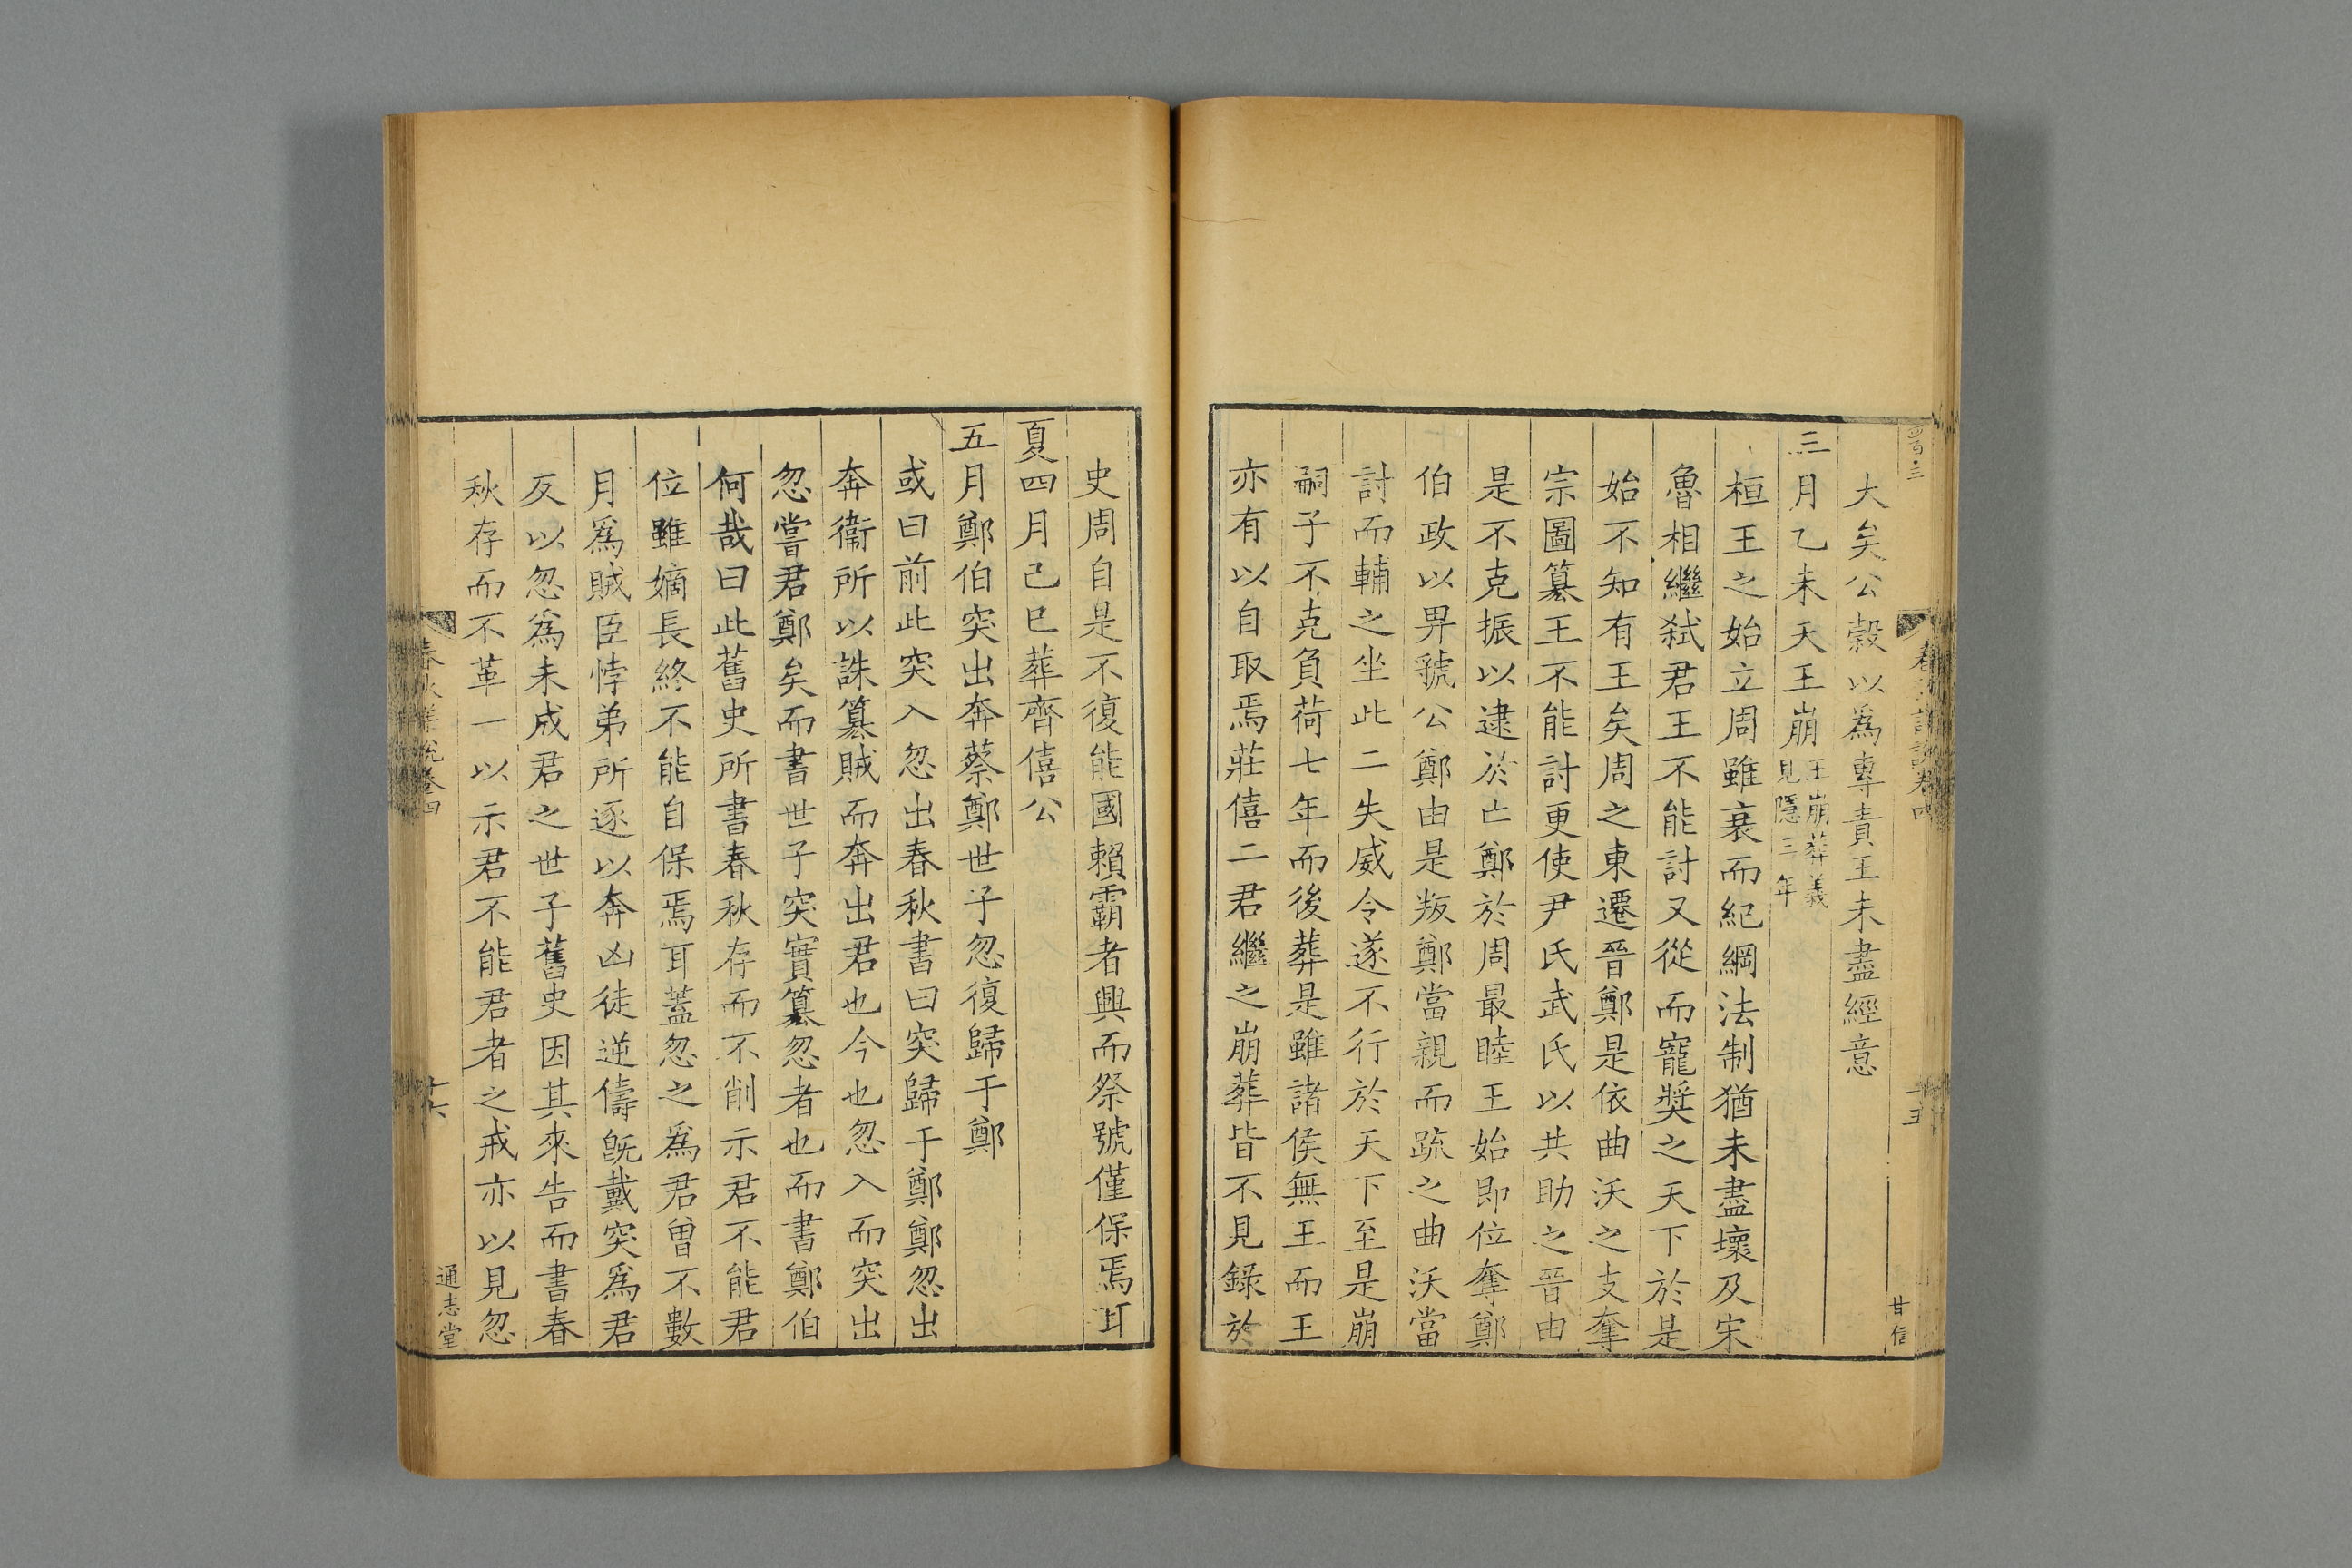 大矣公穀以爲專責王未盡經意
三月乙未天王崩王崩葬義見隱三年
桓王之始立周雖衰而紀綱法制猶未盡壞及宋
魯相繼弑君王不能討又從而寵奬之天下於是
始不知有王矣周之東遷晉鄭是依曲沃之支奪
宗圖簒王不能討更使尹氏武氏以共助之晉由
是不克振以逮於亡鄭於周最睦王始即位奪鄭
伯政以畀虢公鄭由是叛鄭當親而疏之曲沃當
討而輔之坐此二失威令遂不行於天下至是崩
嗣子不克負荷七年而後葬是雖諸侯無王而王
亦有以自取焉莊僖二君繼之崩葬皆不見録於
甘信
史周自是不復能國賴霸者興而祭號僅保焉耳
夏四月己巳葬齊僖公
五月鄭伯突出奔蔡鄭世子忽復歸于鄭
或曰前此突入忽出春秋書曰突歸于鄭鄭忽出
奔衞所以誅簒賊而奔出君也今也忽入而突出
忽嘗君鄭矣而書世子突實簒忽者也而書鄭伯
何哉曰此舊史所書春秋存而不削示君不能君
位雖嫡長終不能自保焉耳蓋忽之爲君曾不數
月爲賊臣悖弟所逐以奔凶徒逆儔旣戴突爲君
反以忽爲未成君之世子舊史因其來告而書春
秋存而不革一以示君不能君者之戒亦以見忽
通志堂